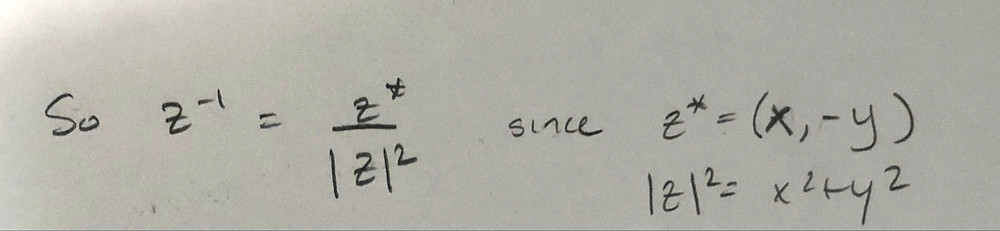 So z⁻¹ = z*/|z|² since z* = (x, -y)
|z|² = x² + y²